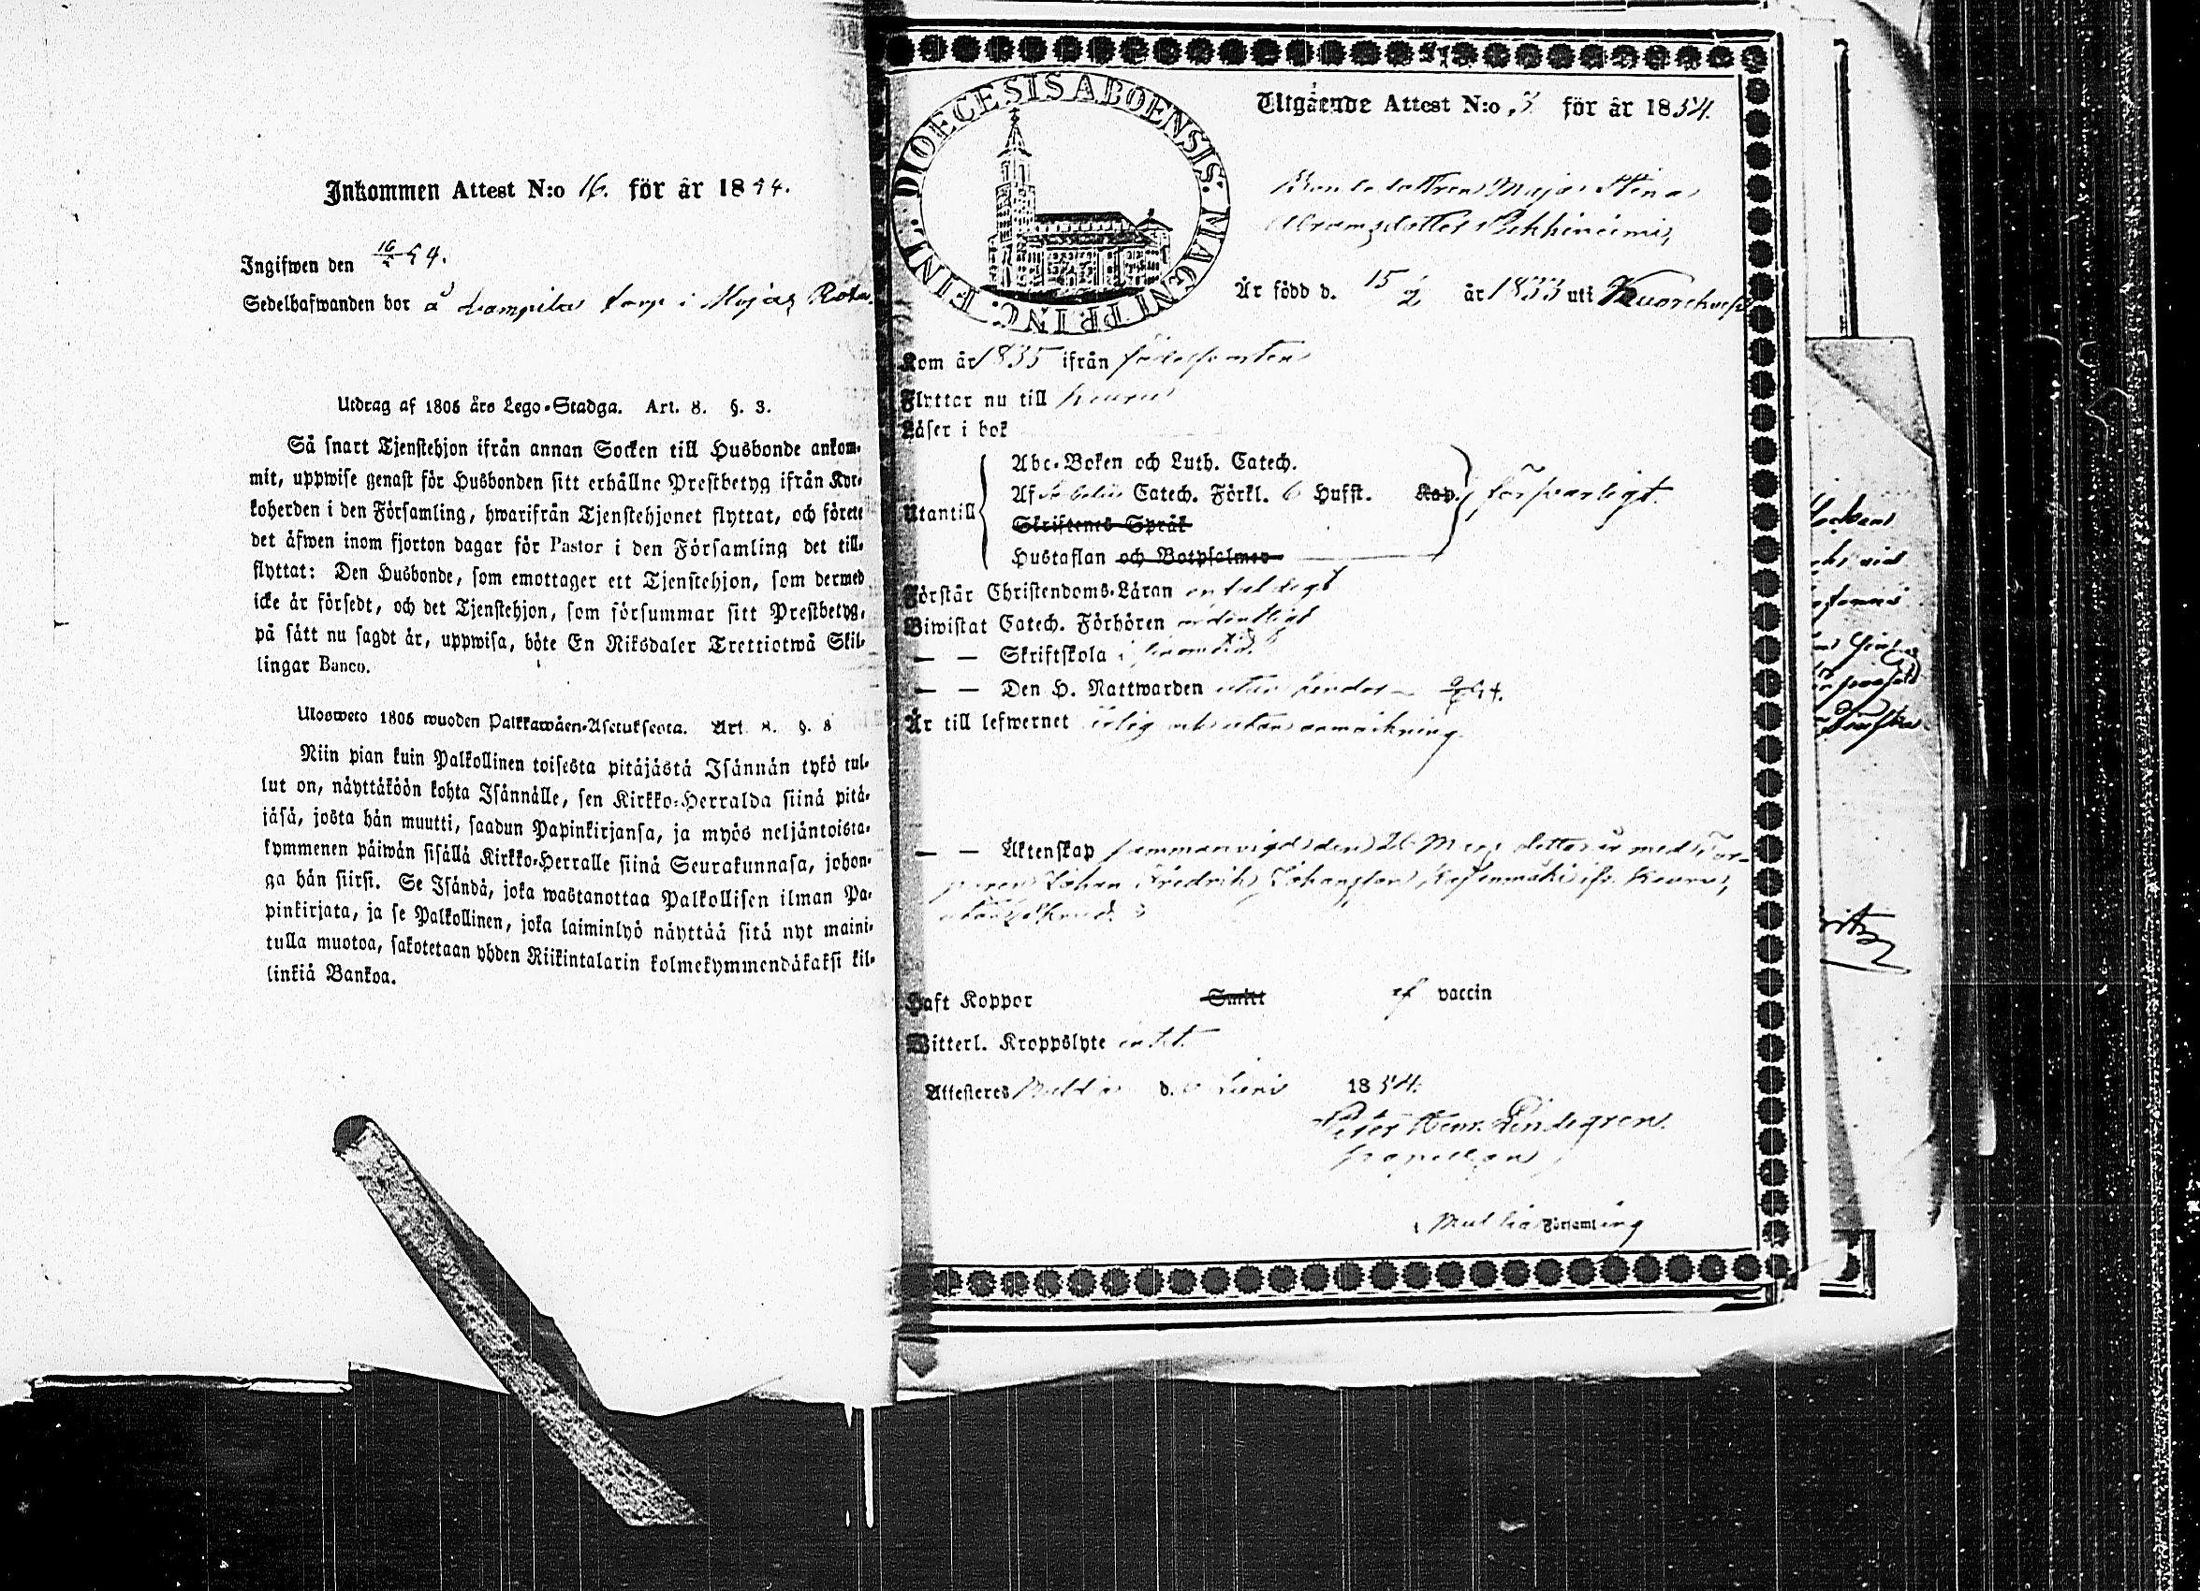 Inkommen Attest N:o 16. för år 1854.
Ingifwen den 54.
Sedelhafwanden bor å torp i
Utdrag af 1805 års Lego-Stadga. Art. 8. §. 3.
Så snart Tjenstehjon ifrån annan Socken till Husbonde ankom-
mit, uppwise genast för Husbonden sitt erhållne Prestbetyg ifrån Kyr-
koherden i den Församling, hwarifrån Tjenstehjonet flyttat, och förete
det äfwen inom fjorton dagar för Pastor i den Församling det till-
flyttat: Den Husbonde, som emottager ett Tjenstehjon, som dermed
icke är försedt, och det Tjenstehjon, som försummar sitt Prestbetyg,
på sätt nu sagdt är, uppwisa, böte En Riksdaler Trettiotwå Skil-
lingar Banco.
Ulosweto 1805 wuoden Palkkawäen-Asetuksesta. Art. 8. §. 8
Niin pian kuin Palkollinen toisesta pitäjästä Isännän tykö tul-
lut on, näyttäköön kohta Isännälle, sen Kirkko-Herralda siinä pitä-
jäsä, josta hän muutti, saadun Papinkirjansa, ja myös neljäntoista-
kymmenen päiwän sisällä Kirkko-Herralle siinä Seurakunnasa, johon-
ga hän siirsi. Se Isändä, joka wastanottaa Palkollisen ilman Pa-
pinkirjata, ja se Palkollinen, joka laiminlyö näyttää sitä nyt maini-
tulla muotoa, sakotetaan yhden Riikintalarin kolmekymmendäkaksi kil-
linkiä Bankoa.
DIOECESIS ABOENSIS. MAGNI PRINC. FINL.
Utgående Attest N:o 3 för år 1854.
Bondedottren Maja Stina
Abramsdotter
Är född d. 15/2 år 1833 uti
Kom år 1835 ifrån födelseorten
Flyttar nu till Keuru
Läser i bok
Utantill
Abc-Boken och Luth. Catech.
Af Catech. Förkl. 6 Hufst. Kap. försvarligt
Skriftenes Språk
Hustaflan och Botpsalmer
Förstår Christendoms-Läran enfaldigt
Biwistat Catech. Förhören ordentligt
— — Skriftskola i
— — Den H. Nattwarden utan hinder 54.
Är till lefwernet ärlig och utan anmärkning
— — Äktenskap sammanvigd den 26 Mars detta år med Tor-
paren Johan Fredrik Johansson ifr. Keuru,
Haft Koppor Smitt af vaccin
Witterl. Kroppslyte intet
Attesteres Multia d. Juni 1854.
Peter Henr. Lindegren.
Capellan
Multia Församling